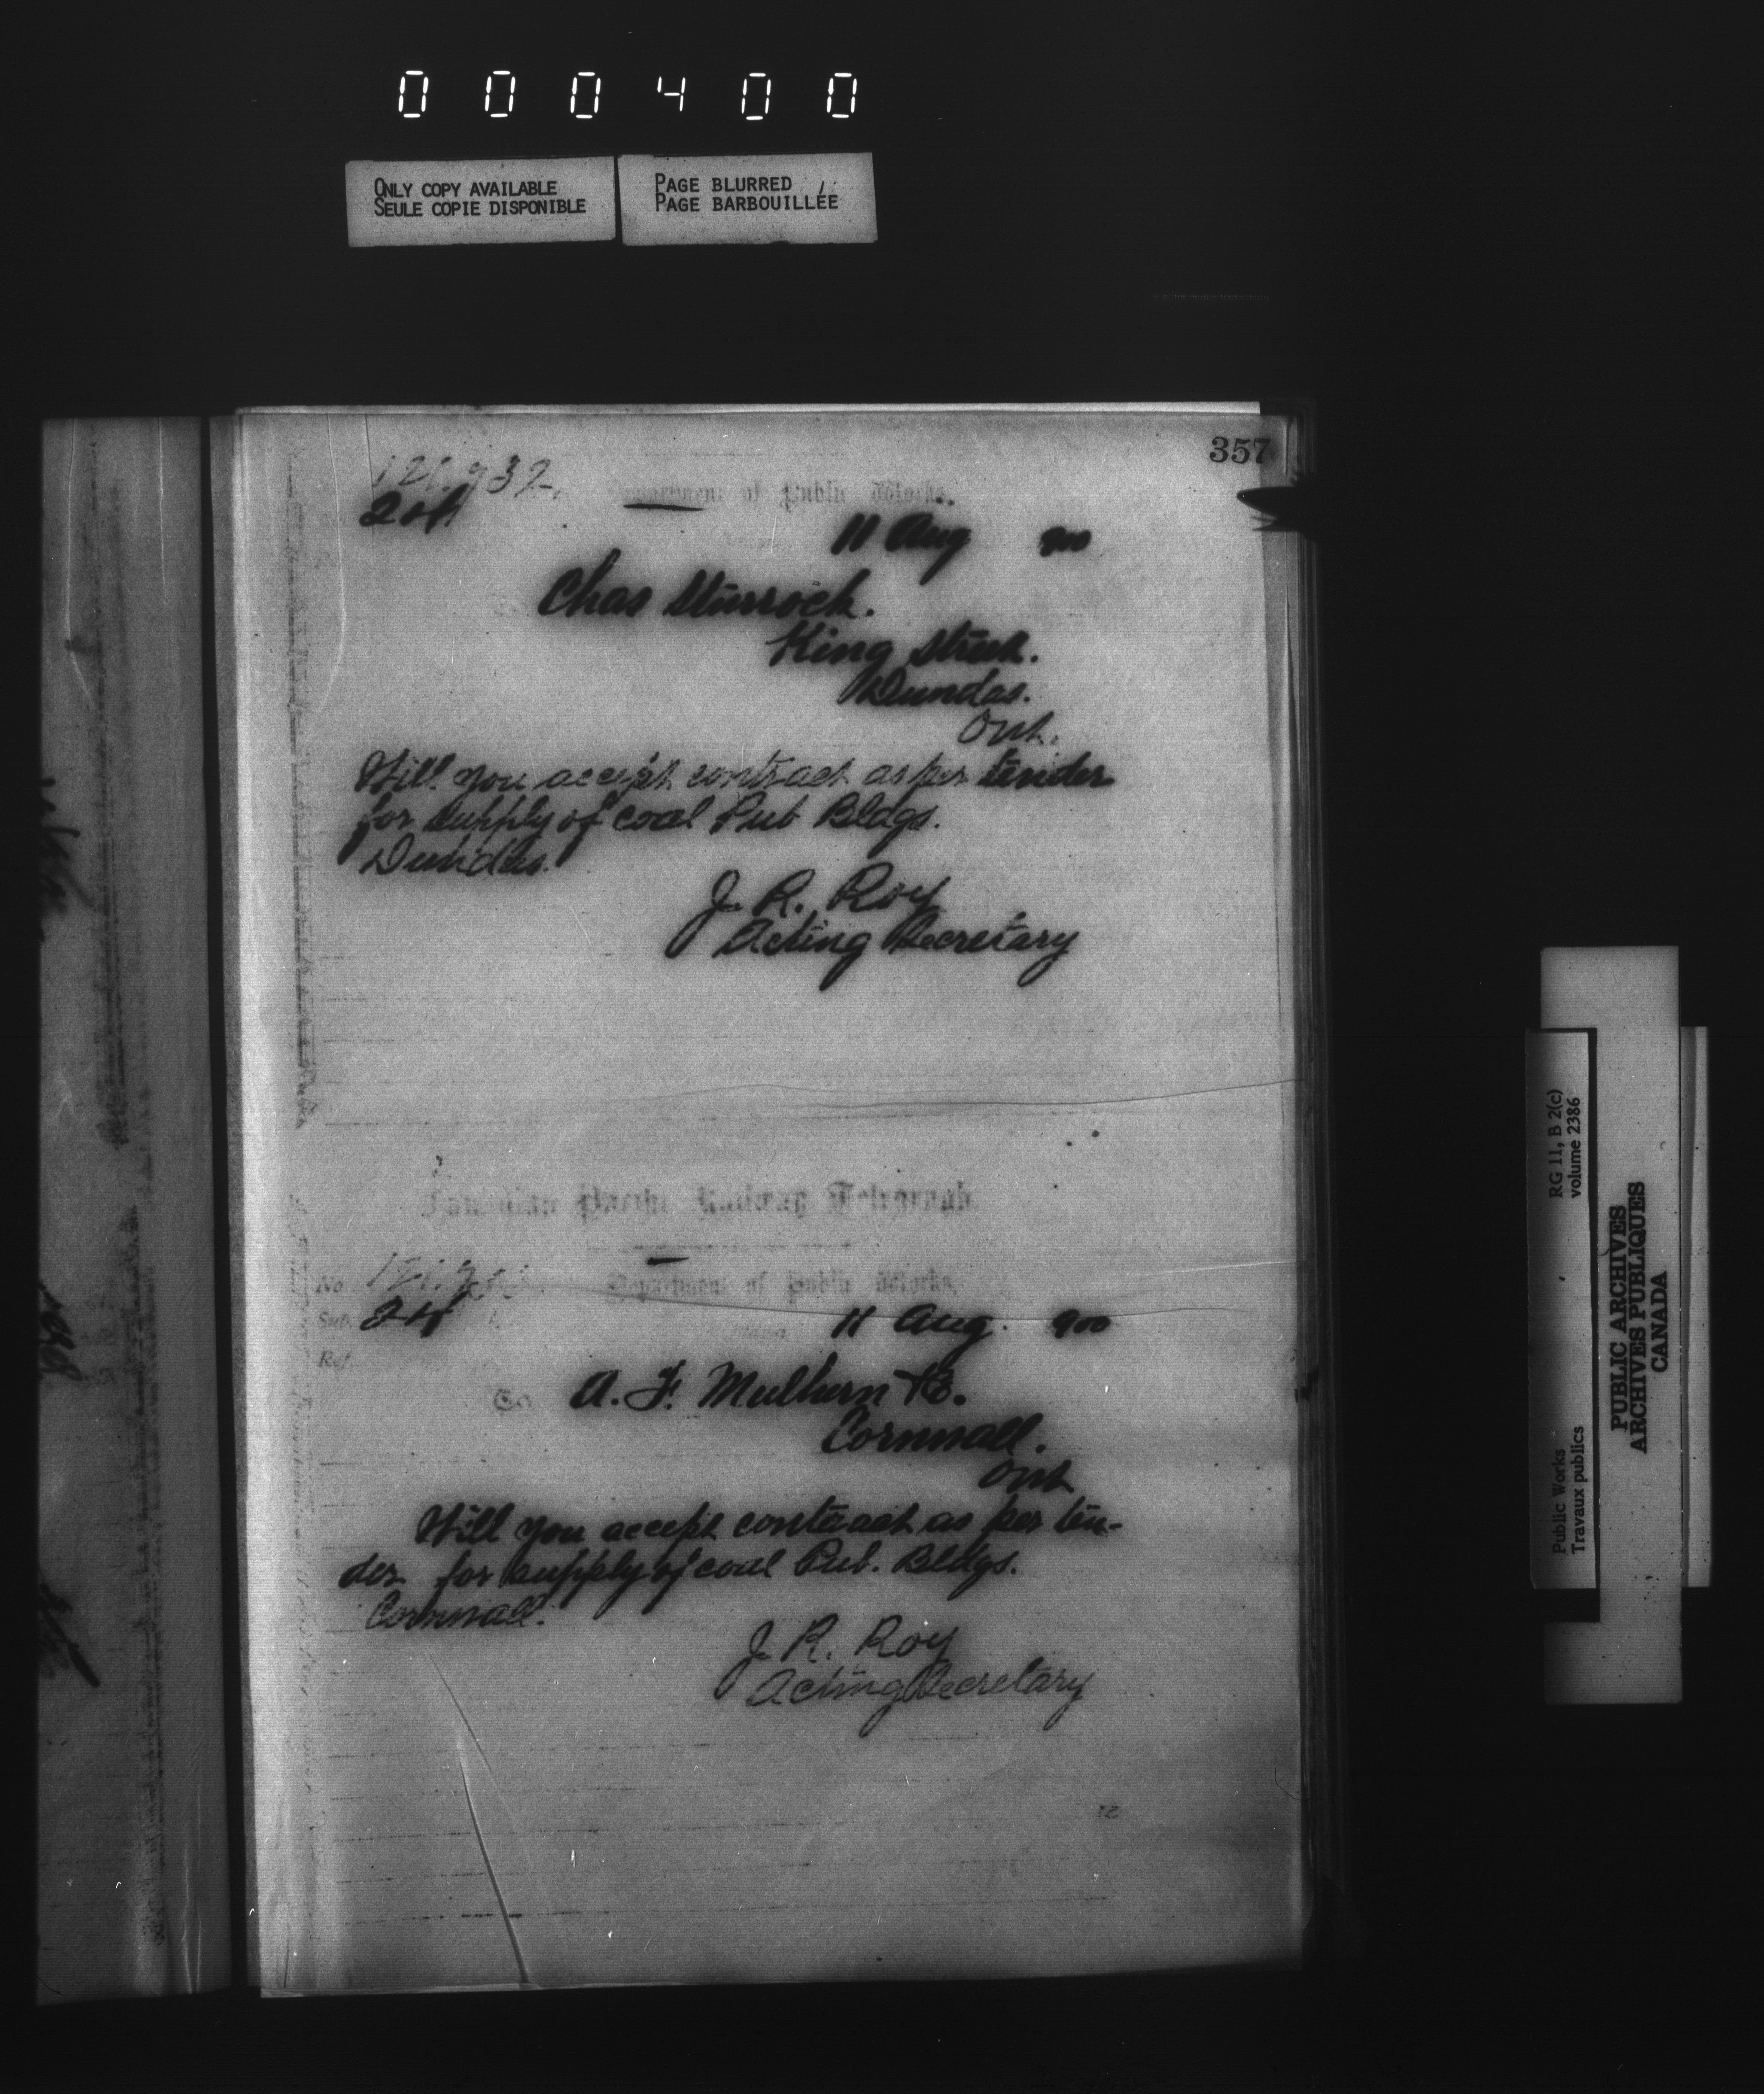 000400
ONLY COPY AVAILABLE
SEULE COPIE DISPONIBLE
PAGE BLURRED
PAGE BARBOUILLÉE
357
Department of Public Works.
11 Aug 900
Chas Sturrock.
King Street.
Dundas.
Ont.
Will you accept contract as per tender
for supply of coal Pub Bldgs.
Dundas.
J. R. Roy
Acting Secretary
Canadian Pacific Railway Telegraph
No
Department of Public Works,
Sub.
11 Aug. 900
Ref.
To A. F. Mulhern
Cornwall.
Ont
Will you accept contract as per ten-
der for supply of coal Pub. Bldgs.
Cornwall.
J. R. Roy
Acting Secretary
RG 11, B 2(c)
volume 2386
Public Works
Travaux publics
PUBLIC ARCHIVES
ARCHIVES PUBLIQUES
CANADA